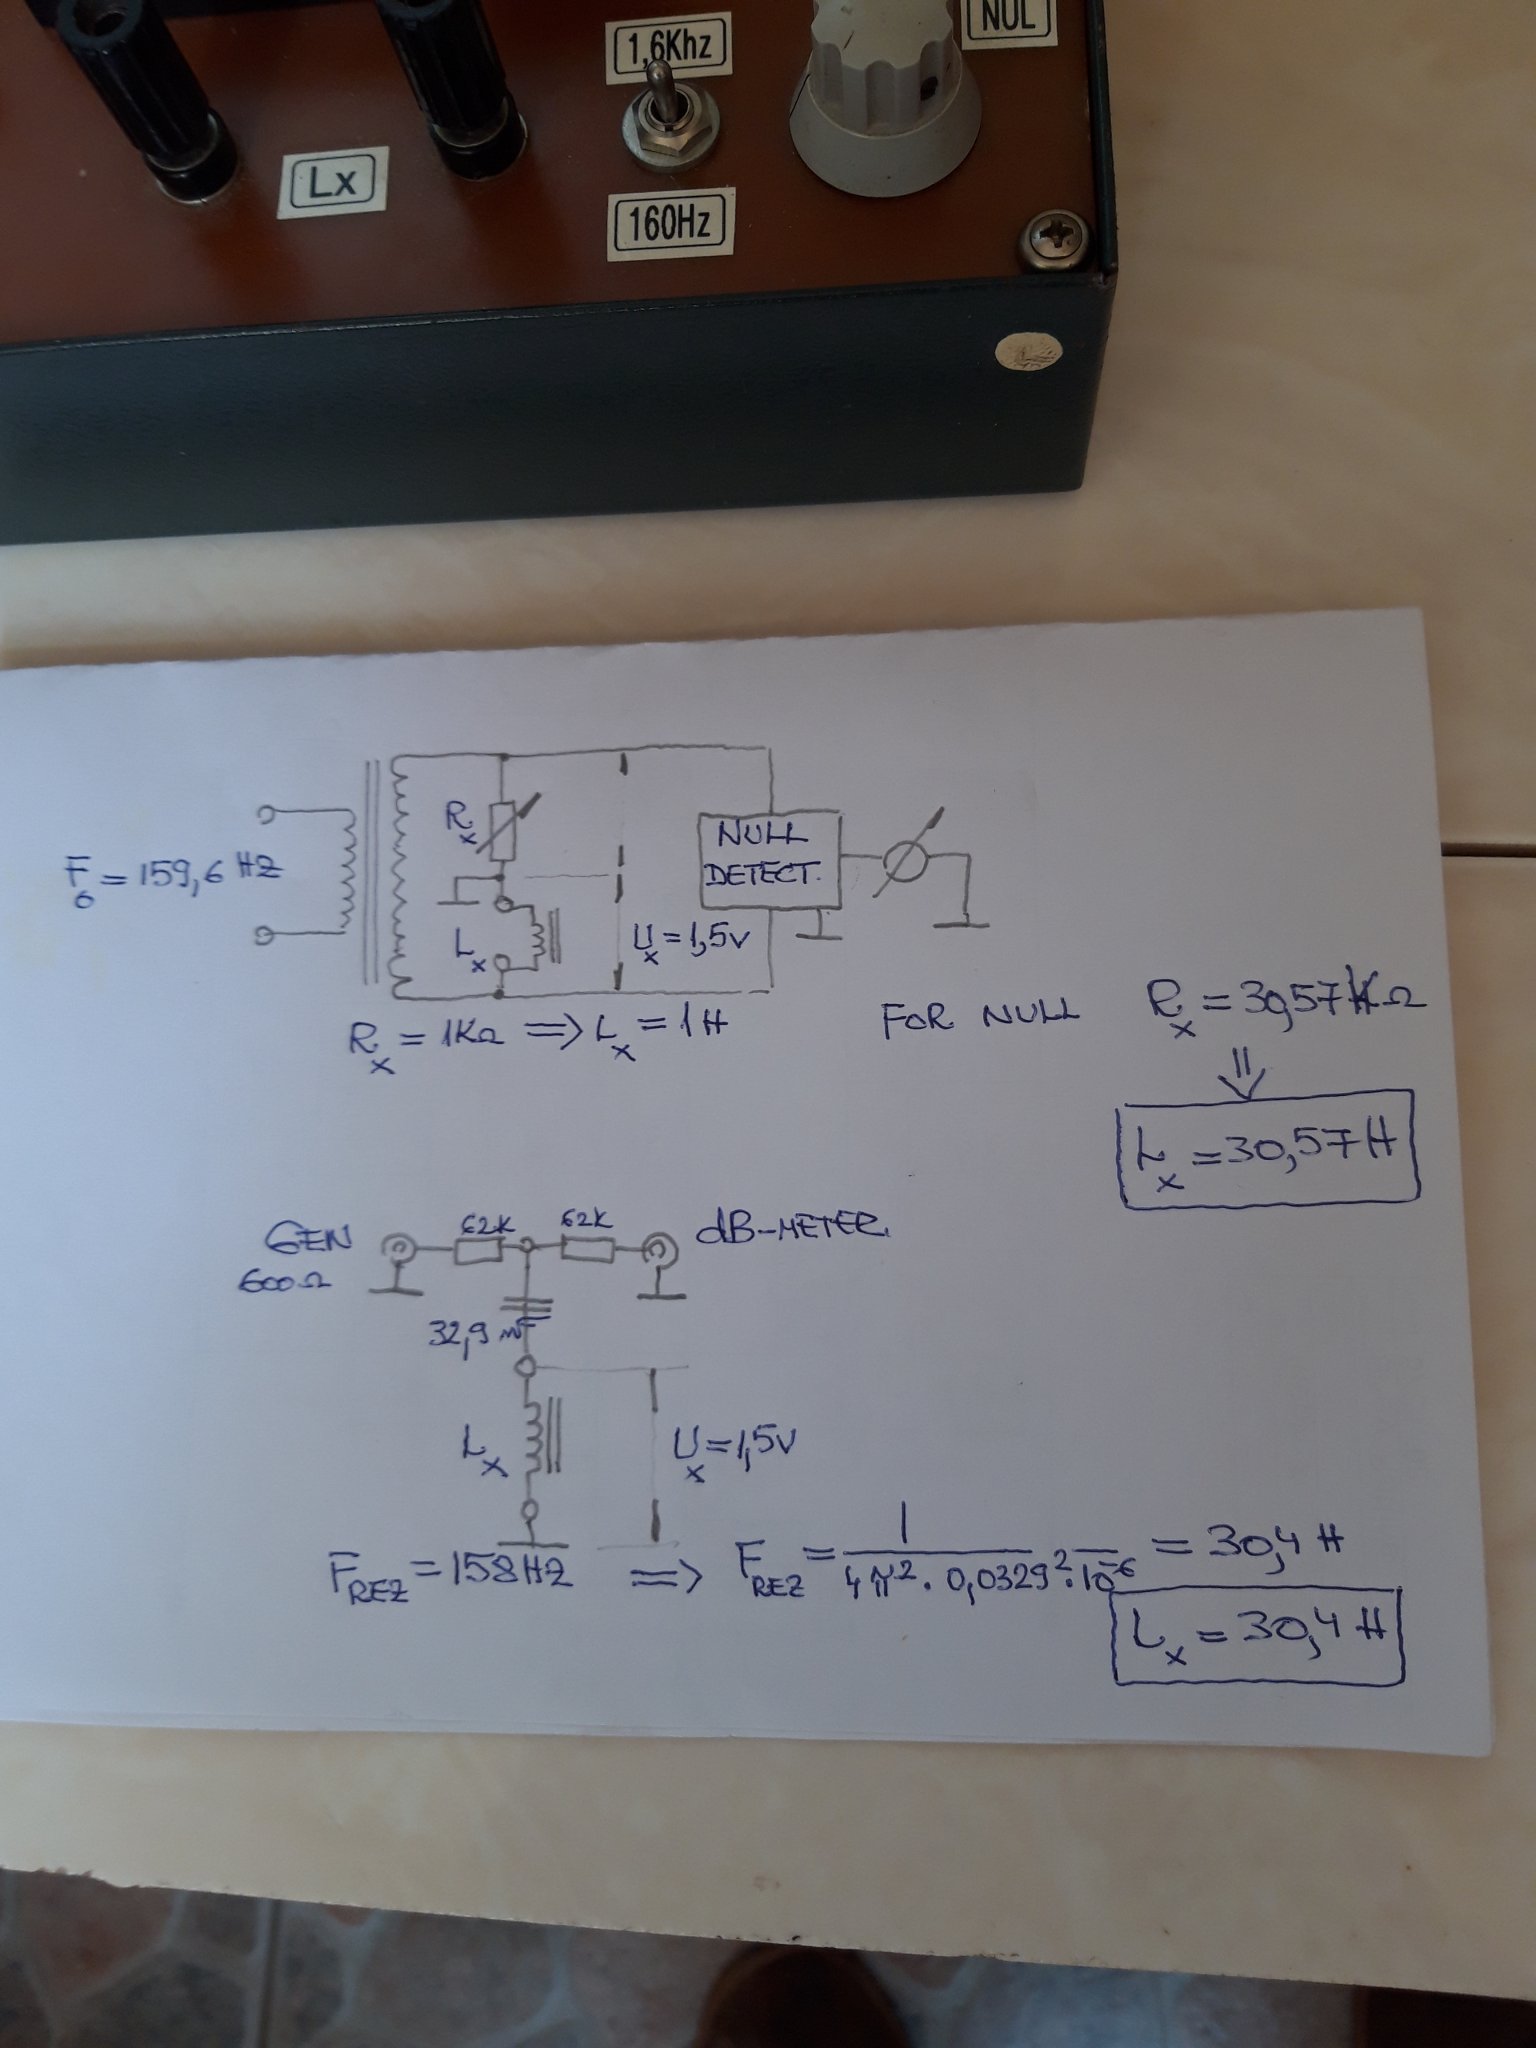 NUL
1,6Khz
Lx
160Hz
Rx
F0 = 159,6 HZ
NULL
DETECT.
Lx
Ux = 1,5V
Rx = 1KΩ ⇒ Lx = 1H
FOR NULL
Rx = 30,57 KΩ
⇓
Lx = 30,57 H
GEN
600Ω
62K
62K
dB-METER
32,9 nF
Lx
Ux = 1,5V
FREZ = 158 HZ ⇒ FREZ = 1 / 4π² · 0,0329² · 10⁻⁶ = 30,4 H
Lx = 30,4 H